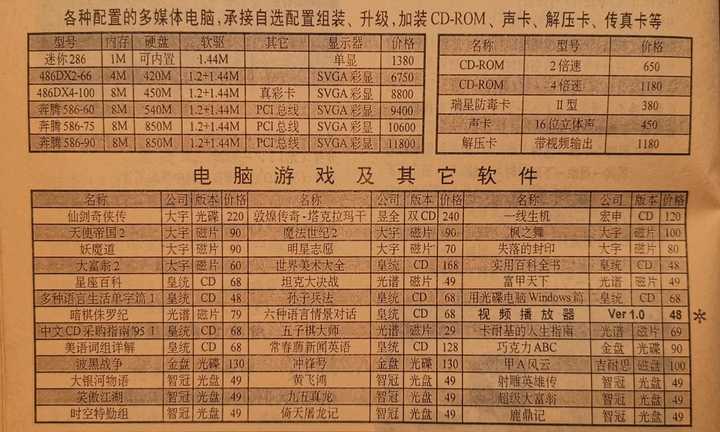 各种配置的多媒体电脑,承接自选配置组装、升级,加装CD-ROM、声卡、解压卡、传真卡等
型号 内存 硬盘 软驱 其它 显示器 价格
迷你286 1M 可内置 1.44M 单显 1380
486DX2-66 4M 420M 1.2+1.44M SVGA彩显 6750
486DX4-100 8M 450M 1.2+1.44M 真彩卡 SVGA彩显 8800
奔腾586-60 8M 540M 1.2+1.44M PCI总线 SVGA彩显 9400
奔腾586-75 8M 850M 1.2+1.44M PCI总线 SVGA彩显 10600
奔腾586-90 8M 850M 1.2+1.44M PCI总线 SVGA彩显 11800
名称 型号 价格
CD-ROM 2倍速 650
CD-ROM 4倍速 1180
瑞星防毒卡 II型 380
声卡 16位立体声 450
解压卡 带视频输出 1180
电脑游戏及其它软件
名称 公司 版本 价格 名称 公司 版本 价格 名称 公司 版本 价格
仙剑奇侠传 大宇 光碟 220 敦煌传奇-塔克拉玛干 昱全 双CD 240 一线生机 宏申 CD 120
天使帝国2 大宇 磁片 90 魔法世纪2 大宇 磁片 90 枫之舞 大宇 磁片 100
妖魔道 大宇 磁片 90 明星志愿 大宇 磁片 70 失落的封印 大宇 磁片 80
大富翁2 大宇 磁片 60 世界美术大全 皇统 CD 168 实用百科全书 皇统 CD 48
星座百科 皇统 CD 68 坦克大决战 光谱 磁片 49 富甲天下 光谱 磁片 49
多种语言生活单字篇1 皇统 CD 48 孙子兵法 皇统 CD 68 用光碟电脑Windows篇 皇统 CD 68
暗棋侏罗纪 光谱 磁片 79 六种语言情景对话 皇统 CD 68 视频播放器 Ver 1.0 48 *
中文CD采购指南'95 1 皇统 CD 68 五子棋大师 光谱 磁片 29 卡耐基的人生指南 光谱 磁片 69
美语词组详解 皇统 CD 68 常春藤新闻英语 皇统 CD 128 巧克力ABC 金盘 光碟 90
波黑战争 金盘 光碟 130 冲锋号 金盘 光碟 130 甲A风云 吉耐思 磁盘 100
大银河物语 智冠 光盘 49 黄飞鸿 智冠 光盘 49 射雕英雄传 智冠 光盘 49
笑傲江湖 智冠 光盘 49 九五真龙 智冠 光盘 49 超级大富翁 智冠 光盘 49
时空特勤组 智冠 光盘 49 倚天屠龙记 智冠 光盘 49 鹿鼎记 智冠 光盘 49